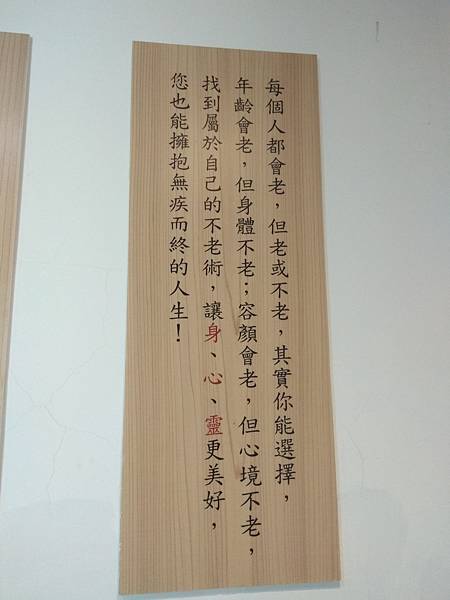 每個人都會老，但老或不老，其實你能選擇，
年齡會老，但身體不老；容顏會老，但心境不老，
找到屬於自己的不老術，讓身、心、靈更美好，
您也能擁抱無疾而終的人生！